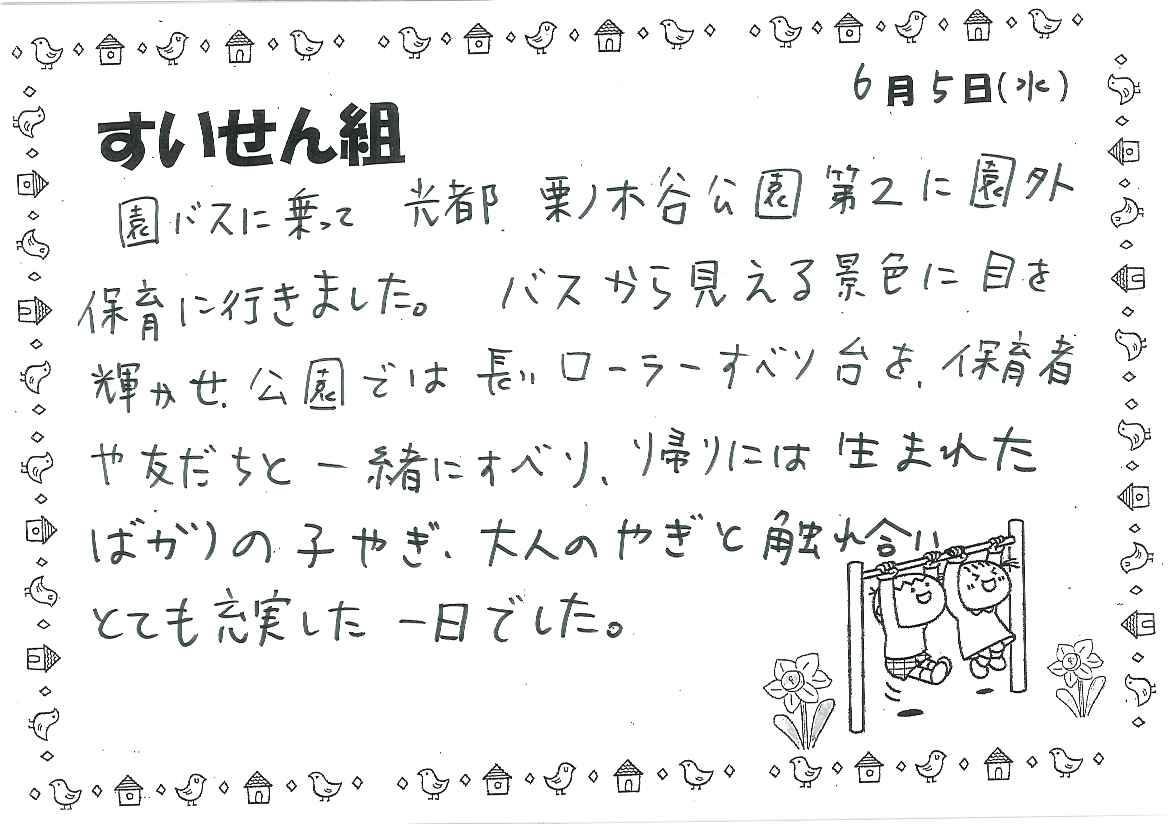 6月5日(水)
すいせん組
園バスに乗って 光都 栗ノ木谷公園第2に園外
保育に行きました。 バスから見える景色に目を
輝かせ、公園では長いローラーすべり台を、保育者
や友だちと一緒にすべり、帰りには生まれた
ばかりの子やぎ、大人のやぎと触れ合い
とても充実した一日でした。